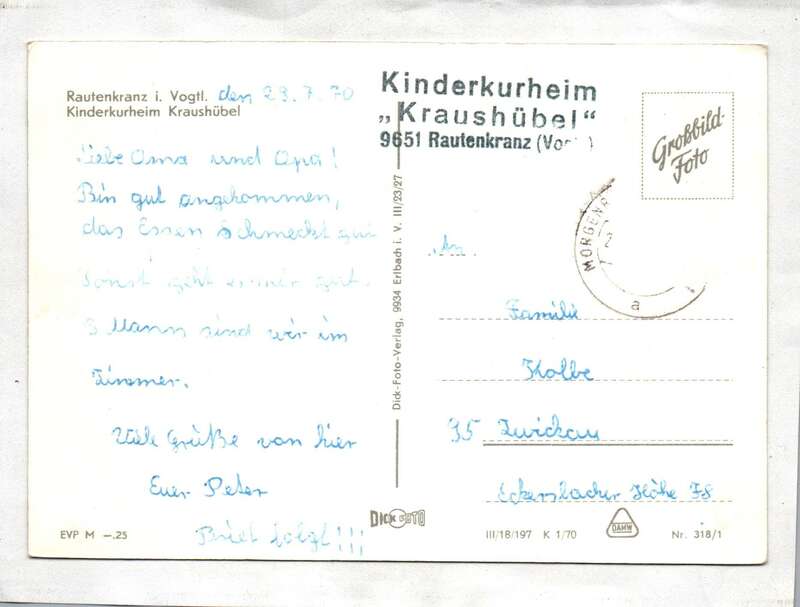 Rautenkranz i. Vogtl. den 23.7.70
Kinderkurheim Kraushübel
Liebe Oma und Opa!
Bin gut angekommen,
das Essen schmeckt gut
Sonst geht es mir gut.
8 Mann sind wir im
Zimmer.
Viele Grüße von hier
Euer Peter
Brief folgt!!!
EVP M –.25
Dick-Foto-Verlag, 9934 Erlbach i. V. III/23/27
DICK FOTO
Kinderkurheim
„Kraushübel"
9651 Rautenkranz
Großbild-
Foto
a
An
Familie
Kolbe
95 Zwickau
Eckersbacher Höhe 78
III/18/197 K 1/70
DAMW
Nr. 318/1